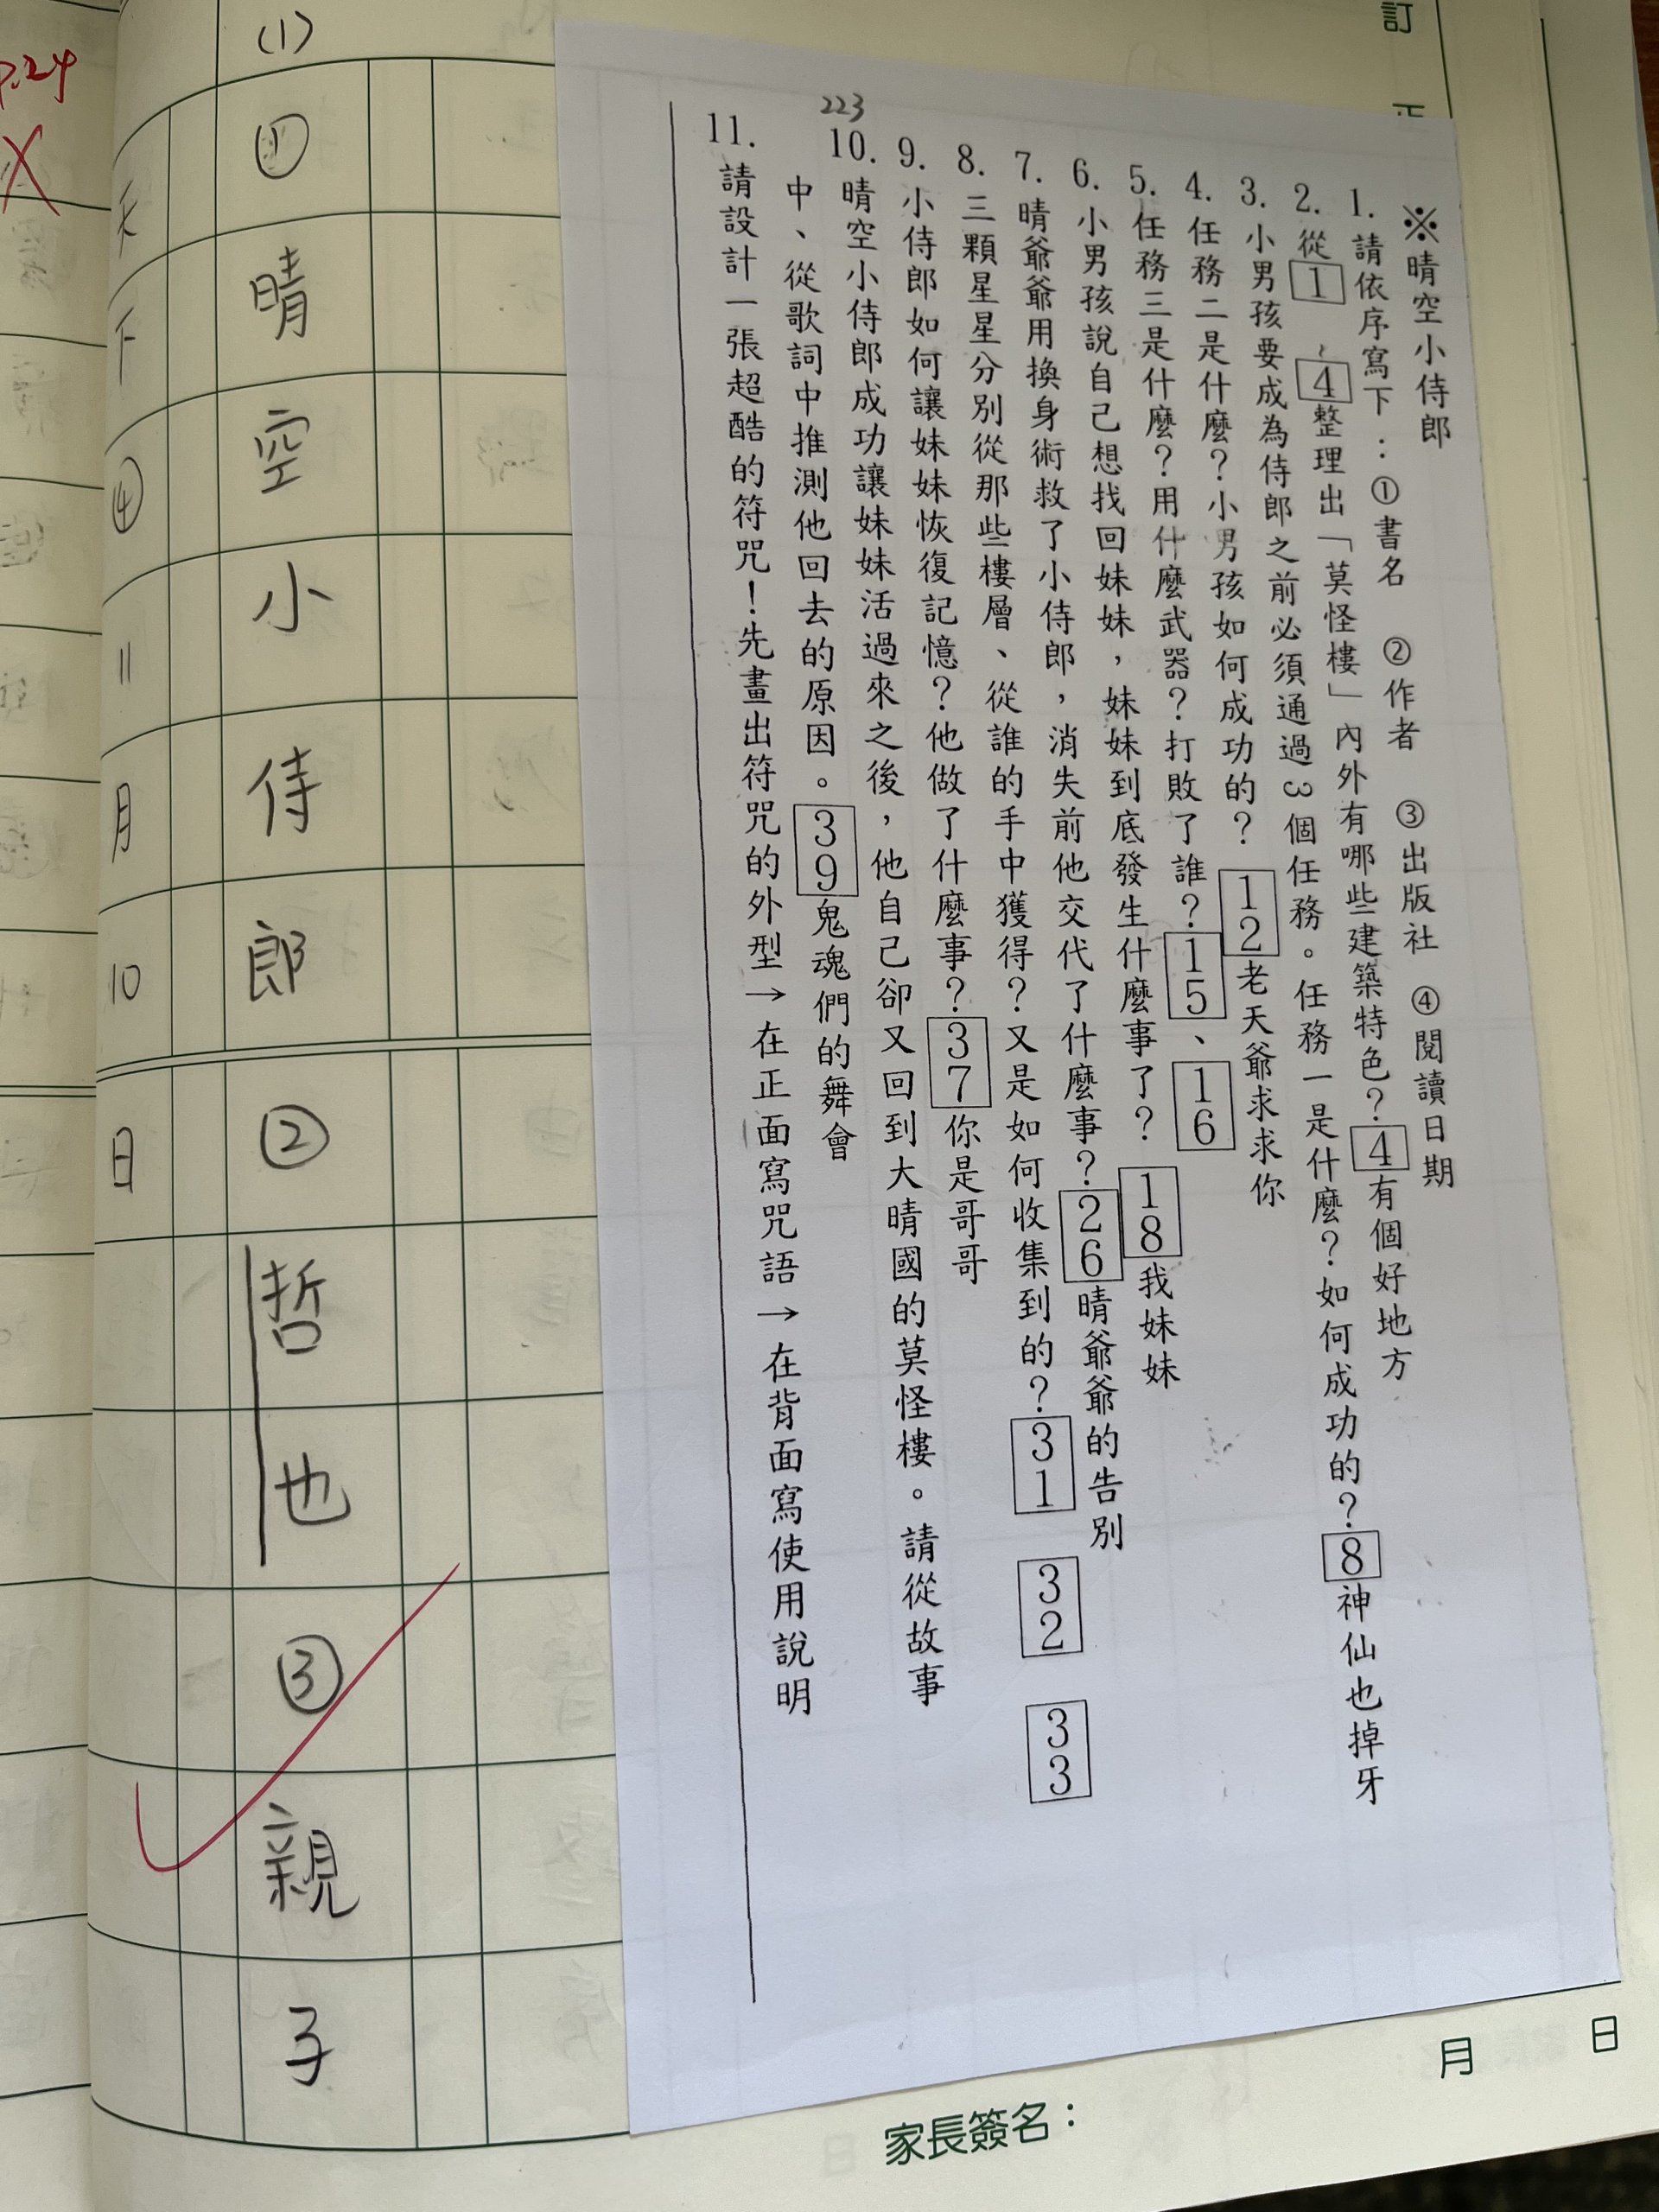 訂正
※晴空小侍郎
1. 請依序寫下：①書名 ②作者 ③出版社 ④閱讀日期
2. 從1～4整理出「莫怪樓」內外有哪些建築特色？4有個好地方
3. 小男孩要成為侍郎之前必須通過3個任務。任務一是什麼？如何成功的？8神仙也掉牙
4. 任務二是什麼？小男孩如何成功的？12老天爺求求你
5. 任務三是什麼？用什麼武器？打敗了誰？15、16
6. 小男孩說自己想找回妹妹，妹妹到底發生什麼事了？18我妹妹
7. 晴爺爺用換身術救了小侍郎，消失前他交代了什麼事？26晴爺爺的告別
8. 三顆星星分別從那些樓層、從誰的手中獲得？又是如何收集到的？31 32 33
9. 小侍郎如何讓妹妹恢復記憶？他做了什麼事？37你是哥哥
223
10. 晴空小侍郎成功讓妹妹活過來之後，他自己卻又回到大晴國的莫怪樓。請從故事
中、從歌詞中推測他回去的原因。39鬼魂們的舞會
11. 請設計一張超酷的符咒！先畫出符咒的外型→在正面寫咒語→在背面寫使用說明
(1)
①晴空小侍郎②哲也③親子
天下④11月10日
P.24
月 日
家長簽名：